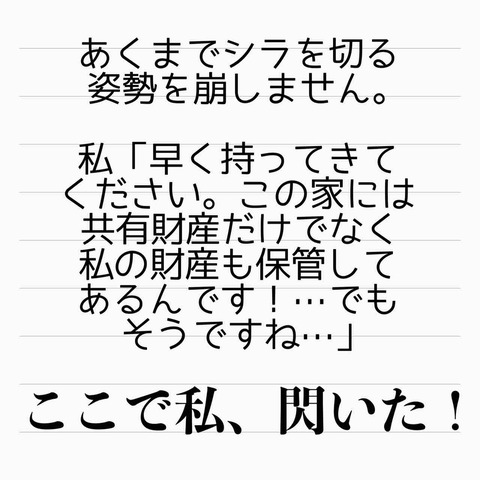 あくまでシラを切る
姿勢を崩しません。
私「早く持ってきて
ください。この家には
共有財産だけでなく
私の財産も保管して
あるんです！…でも
そうですね…」
ここで私、閃いた！